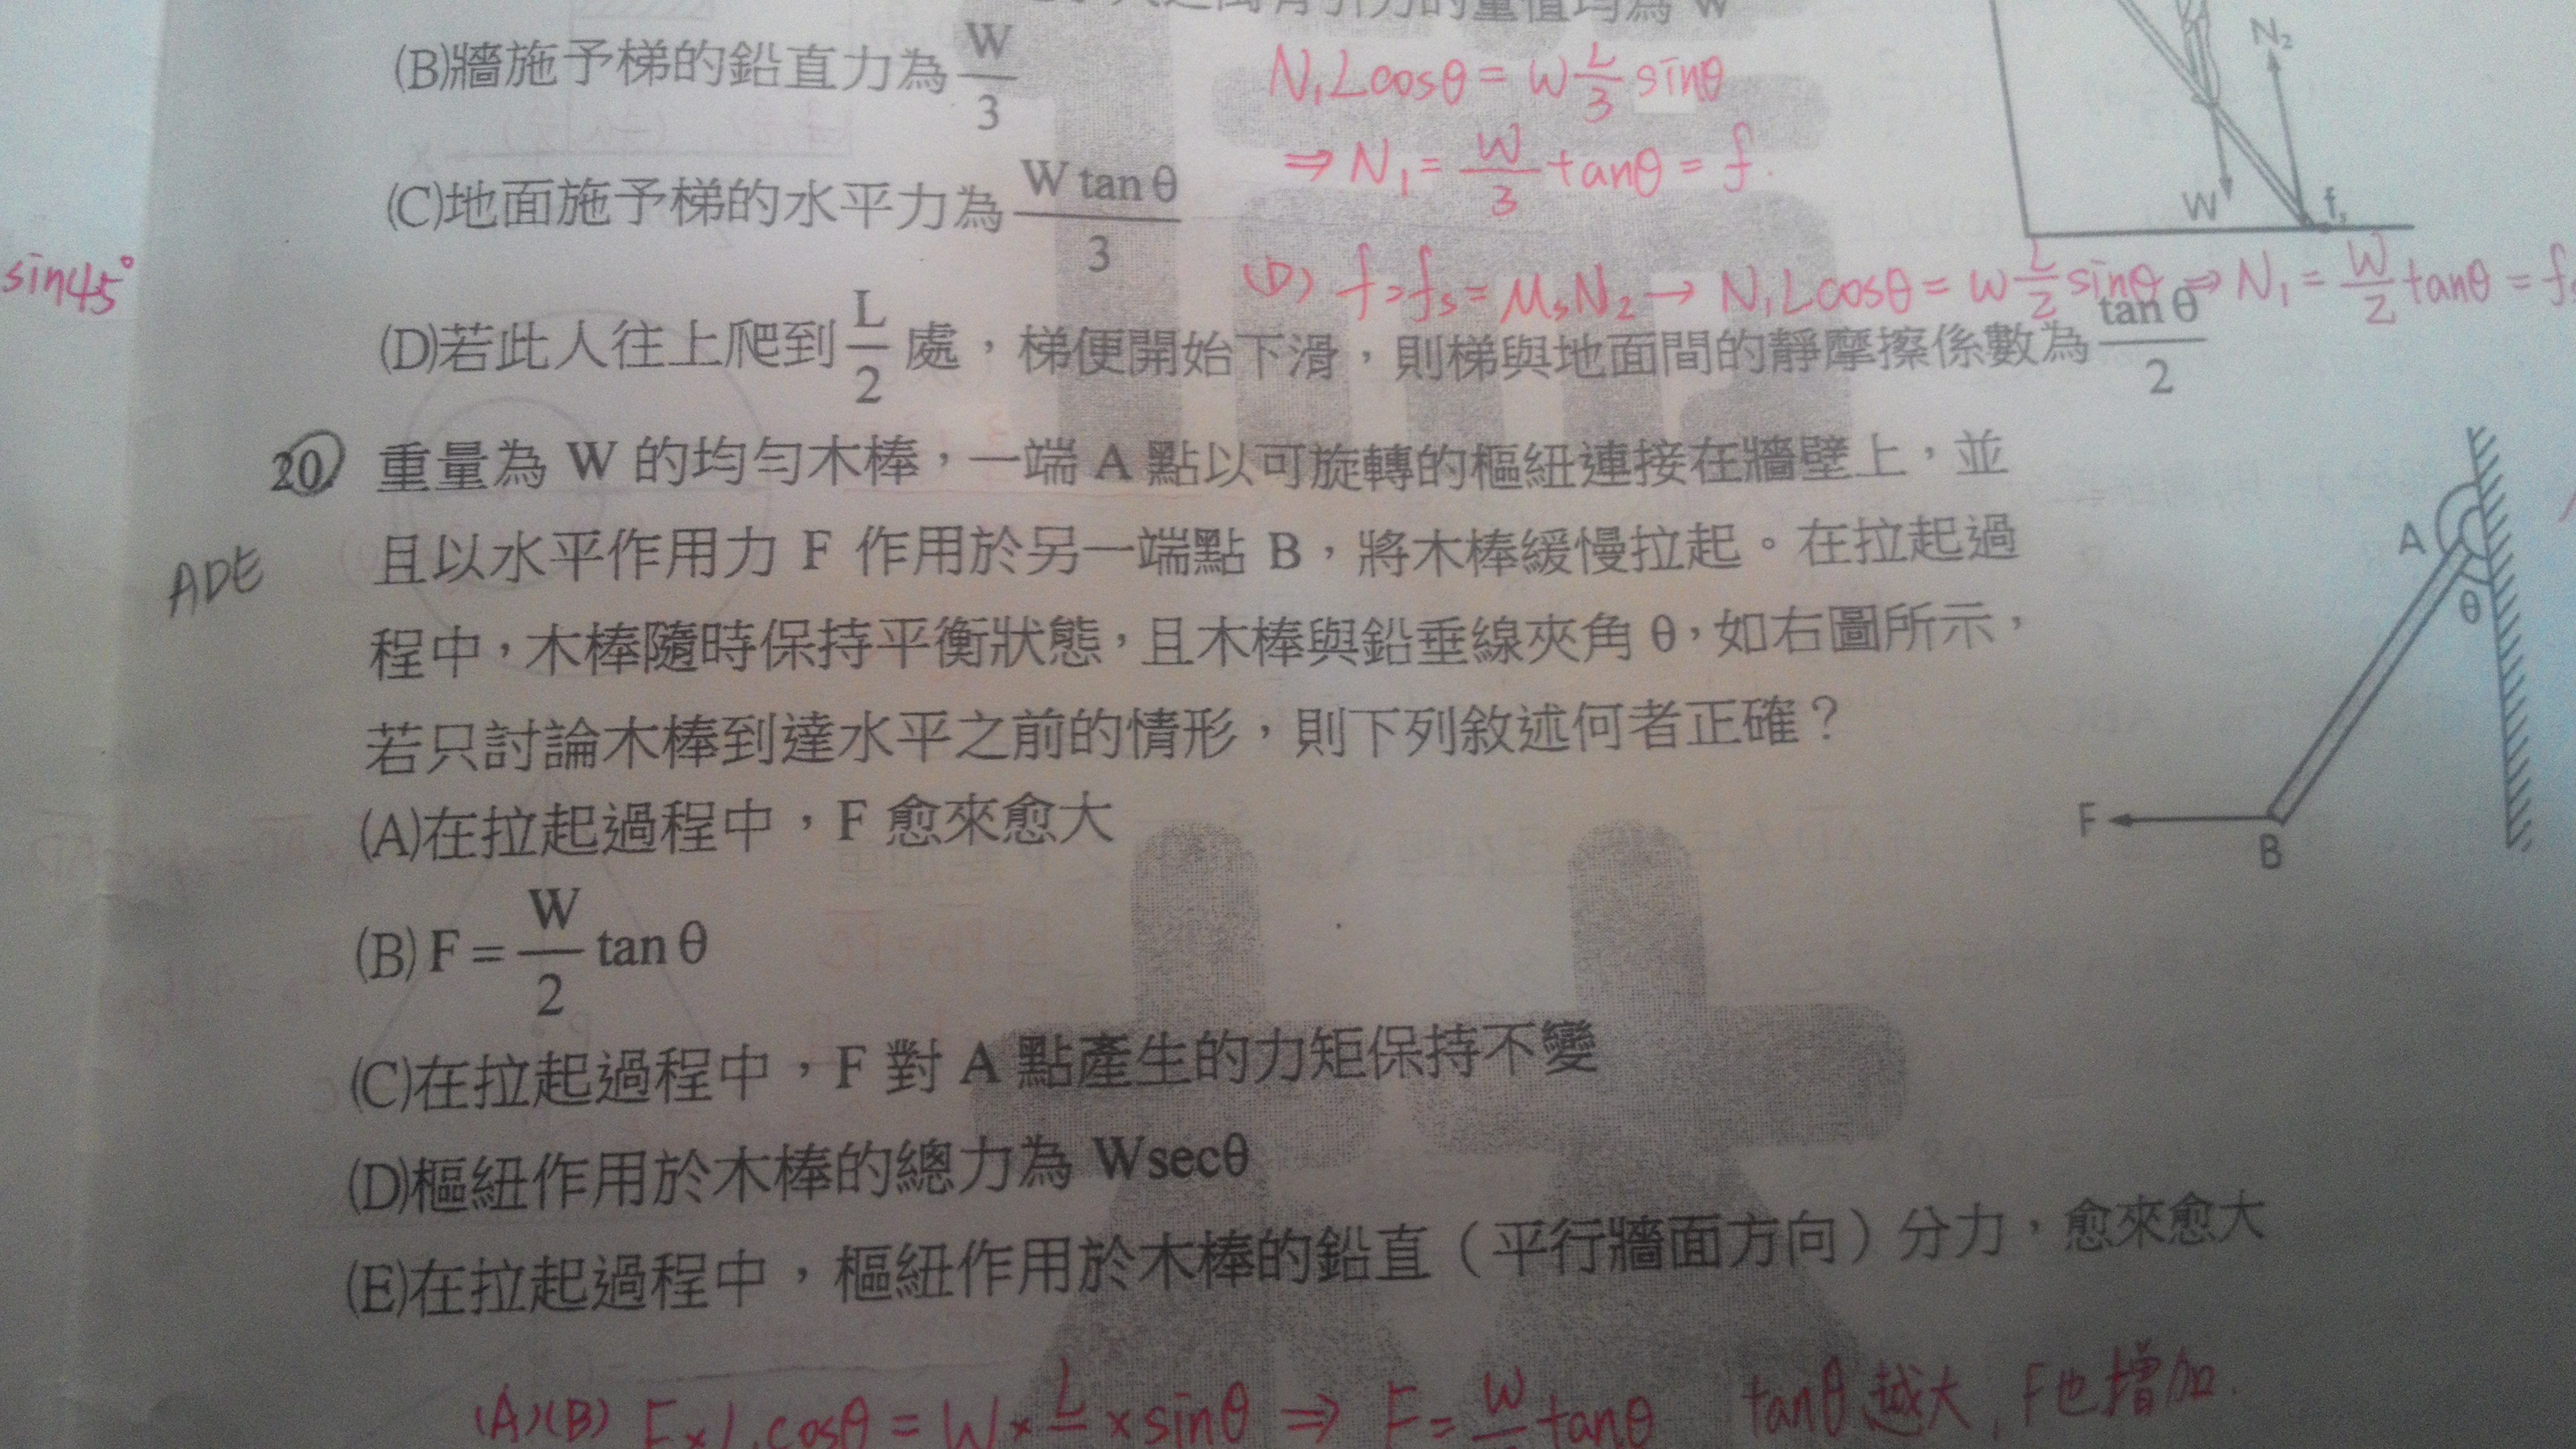 的量值均為 W
(B)牆施予梯的鉛直力為 W/3
N₁Lcosθ = W L/3 sinθ
⇒ N₁ = W/3 tanθ = f.
(C)地面施予梯的水平力為 W tan θ/3
N₂
W
fs
sin45°
(D) f=fs=μsN₂→ N₁Lcosθ = W L/2 sinθ ⇒ N₁ = W/2 tanθ = f
(D)若此人往上爬到 L/2 處，梯便開始下滑，則梯與地面間的靜摩擦係數為 tan θ/2
20. 重量為 W 的均勻木棒，一端 A 點以可旋轉的樞紐連接在牆壁上，並
且以水平作用力 F 作用於另一端點 B，將木棒緩慢拉起。在拉起過
ADE
程中，木棒隨時保持平衡狀態，且木棒與鉛垂線夾角 θ，如右圖所示，
若只討論木棒到達水平之前的情形，則下列敘述何者正確？
A
θ
F
B
(A)在拉起過程中，F 愈來愈大
(B) F = W/2 tan θ
(C)在拉起過程中，F 對 A 點產生的力矩保持不變
(D)樞紐作用於木棒的總力為 Wsecθ
(E)在拉起過程中，樞紐作用於木棒的鉛直（平行牆面方向）分力，愈來愈大
(A)(B) F×L cosθ = W× L × sinθ ⇒ F= W tanθ tanθ越大, F也增加.